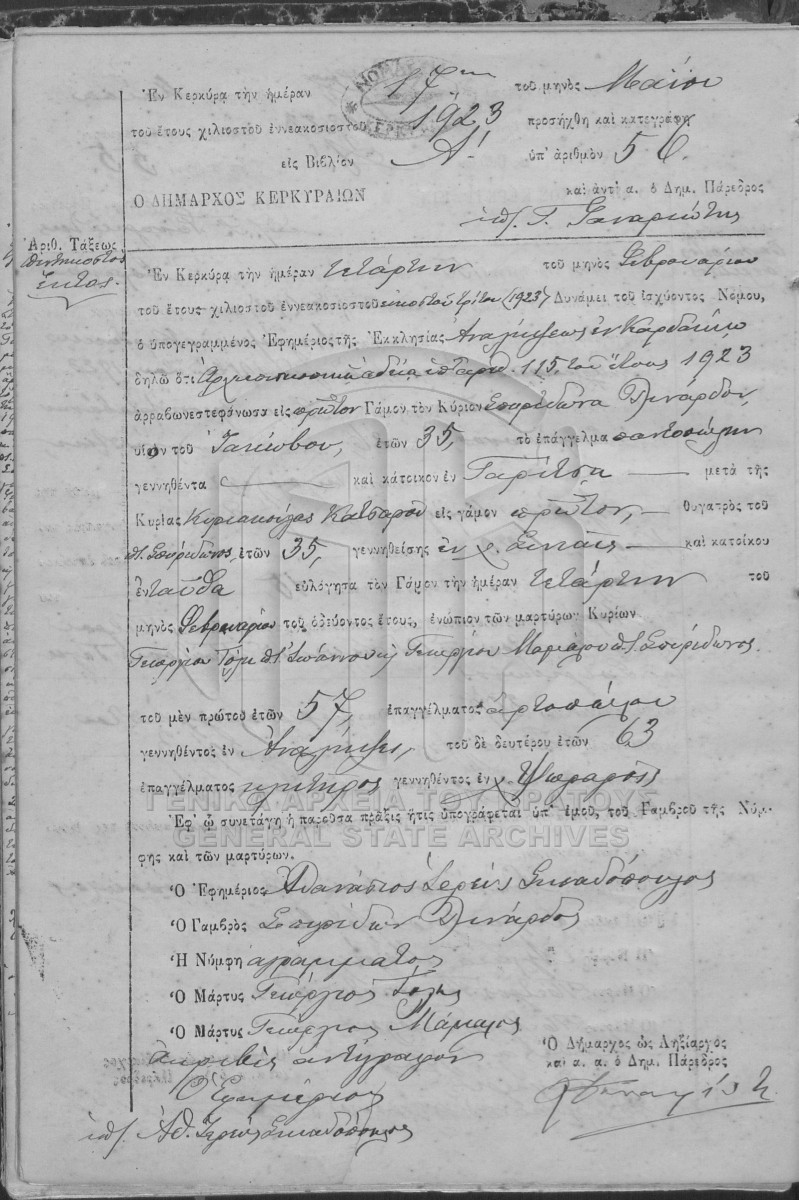 Ἐν Κερκύρᾳ τὴν ἡμέραν 17ην τοῦ μηνὸς Μαΐου
τοῦ ἔτους χιλιοστοῦ ἐννεακοσιοστοῦ 1923 προσήχθη καὶ κατεγράφη
εἰς Βιβλίον Α! ὑπ' ἀριθμὸν 56.
Ο ΔΗΜΑΡΧΟΣ ΚΕΡΚΥΡΑΙΩΝ καὶ ἀντ' α. ὁ Δημ. Πάρεδρος
ὑπ/. Γ.
Ἀριθ. Τάξεως
πεντηκοστὸς
ἕκτος.
Ἐν Κερκύρᾳ τὴν ἡμέραν τετάρτην τοῦ μηνὸς Φεβρουαρίου
τοῦ ἔτους χιλιοστοῦ ἐννεακοσιοστοῦ εἰκοστοῦ τρίτου (1923) Δυνάμει τοῦ ἰσχύοντος Νόμου,
ὁ ὑπογεγραμμένος Ἐφημέριος τῆς Ἐκκλησίας Ἀναλήψεως ἐν Καρδακίῳ
δηλῶ ὅτι Ἀρχιεπισκοπικῇ ἀδείᾳ ὑπ' ἀριθ. 115, τοῦ ἔτους 1923
ἀρραβωνεστεφάνωσα εἰς πρῶτον Γάμον τὸν Κύριον Σπυρίδωνα Δινάρδον,
υἱὸν τοῦ Ἰακώβου, ἐτῶν 35, τὸ ἐπάγγελμα παντοπώλην
γεννηθέντα καὶ κάτοικον ἐν Γαρίτσῃ μετὰ τῆς
Κυρίας Κυριακούλας Κατσαροῦ εἰς γάμον πρῶτον, θυγατρὸς τοῦ
π. Σπυρίδωνος, ἐτῶν 35, γεννηθείσης ἐν χ. καὶ κατοίκου
ἐνταῦθα εὐλόγησα τὸν Γάμον τὴν ἡμέραν τετάρτην τοῦ
μηνὸς Φεβρουαρίου τοῦ ὁδεύοντος ἔτους, ἐνώπιον τῶν μαρτύρων Κυρίων
Γεωργίου Τόλη π. Ἰωάννου καὶ Γεωργίου Μαμάλου π. Σπυρίδωνος.
τοῦ μὲν πρώτου ἐτῶν 57, ἐπαγγέλματος ἀρτοποιοῦ
γεννηθέντος ἐν Ἀναλήψει, τοῦ δὲ δευτέρου ἐτῶν 63
ἐπαγγέλματος κλητῆρος γεννηθέντος ἐν χ. Ψωραροὺς
ΓΕΝΙΚΑ ΑΡΧΕΙΑ ΤΟΥ ΚΡΑΤΟΥΣ
Ἐφ' ᾧ συνετάγη ἡ παροῦσα πρᾶξις ἥτις ὑπογράφεται ὑπ' ἐμοῦ, τοῦ Γαμβροῦ τῆς Νύμ-
GENERAL STATE ARCHIVES
φης καὶ τῶν μαρτύρων.
Ὁ Ἐφημέριος Ἀθανάσιος Ἱερεὺς
Ὁ Γαμβρὸς Σπυρίδων Δινάρδος
Ἡ Νύμφη ἀγράμματος
Ὁ Μάρτυς Γεώργιος Τόλης
Ὁ Μάρτυς Γεώργιος Μάμαλος
Ἀκριβὲς ἀντίγραφον
Ὁ Δήμαρχος ὡς Ληξίαρχος
καὶ α. α. ὁ Δημ. Πάρεδρος
Ὁ Ἐφημέριος
ὑπ/. Ἀθ. Ἱερεὺς